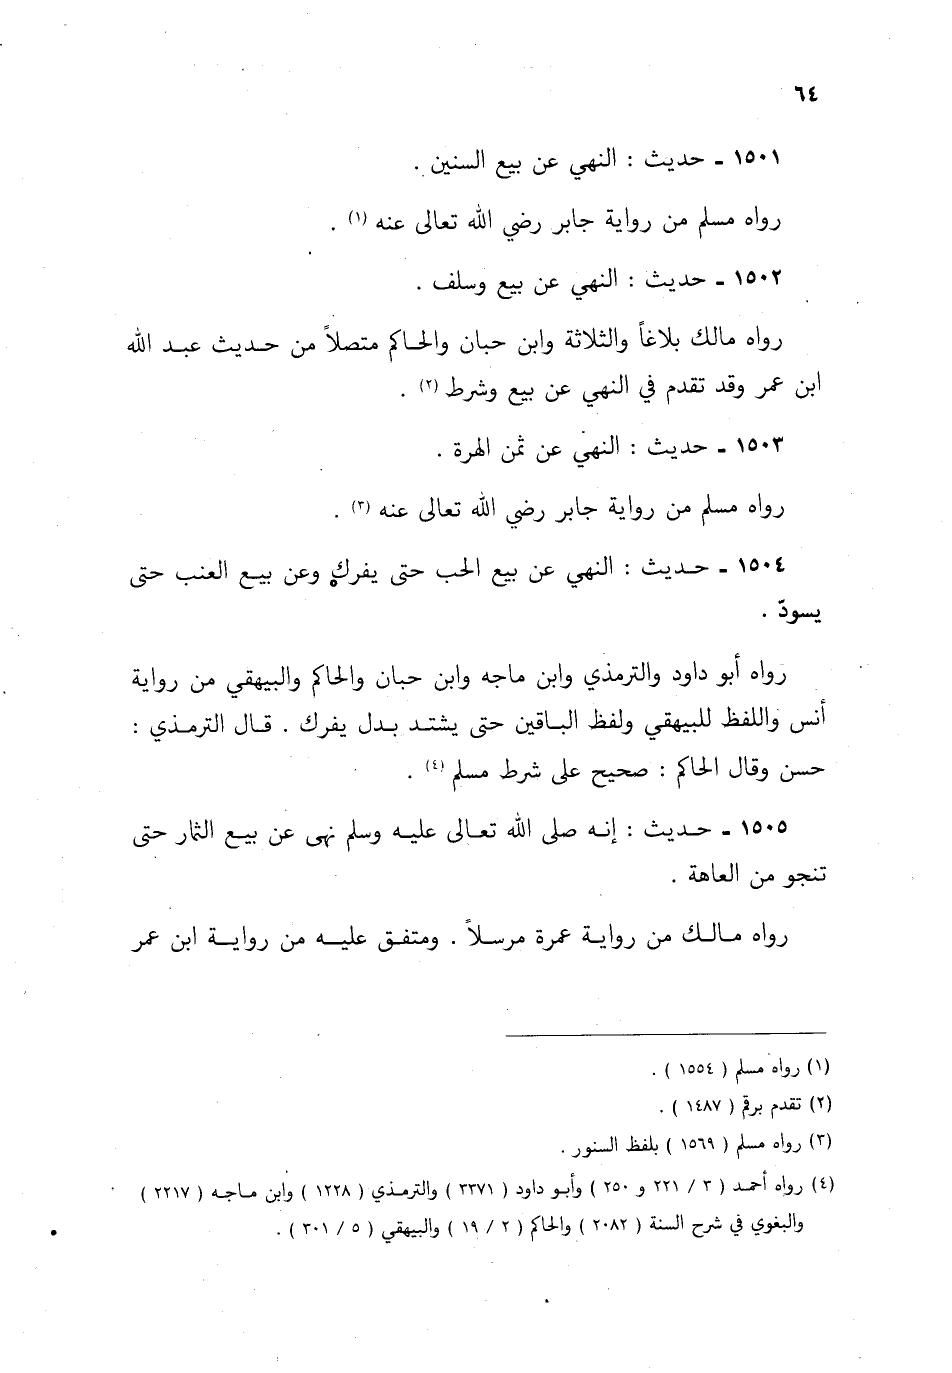 ٦٤
١٥٠١ ـ حديث : النهي عن بيع السنين .
رواه مسلم من رواية جابر رضي الله تعالى عنه (١) .
١٥٠٢ ـ حديث : النهي عن بيع وسلف .
رواه مالك بلاغاً والثلاثة وابن حبان والحاكم متصلاً من حديث عبد الله
ابن عمر وقد تقدم في النهي عن بيع وشرط (٢) .
١٥٠٣ ـ حديث : النهي عن ثمن الهرة .
رواه مسلم من رواية جابر رضي الله تعالى عنه (٣) .
١٥٠٤ ـ حديث : النهي عن بيع الحب حتى يفرك وعن بيع العنب حتى
يسودّ .
رواه أبو داود والترمذي وابن ماجه وابن حبان والحاكم والبيهقي من رواية
أنس واللفظ للبيهقي ولفظ الباقين حتى يشتد بدل يفرك . قال الترمذي :
حسن وقال الحاكم : صحيح على شرط مسلم (٤) .
١٥٠٥ ـ حديث : إنه صلى الله تعالى عليه وسلم نهى عن بيع الثمار حتى
تنجو من العاهة .
رواه مالك من رواية عمرة مرسلاً . ومتفق عليه من رواية ابن عمر
(١) رواه مسلم ( ١٥٥٤ ) .
(٢) تقدم برقم ( ١٤٨٧ ) .
(٣) رواه مسلم ( ١٥٦٩ ) بلفظ السنور .
(٤) رواه أحمد ( ٣ / ٢٢١ و ٢٥٠ ) وأبو داود ( ٣٣٧١ ) والترمذي ( ١٢٢٨ ) وابن ماجه ( ٢٢١٧ )
والبغوي في شرح السنة ( ٢٠٨٢ ) والحاكم ( ٢ / ١٩ ) والبيهقي ( ٥ / ٣٠١ ) .